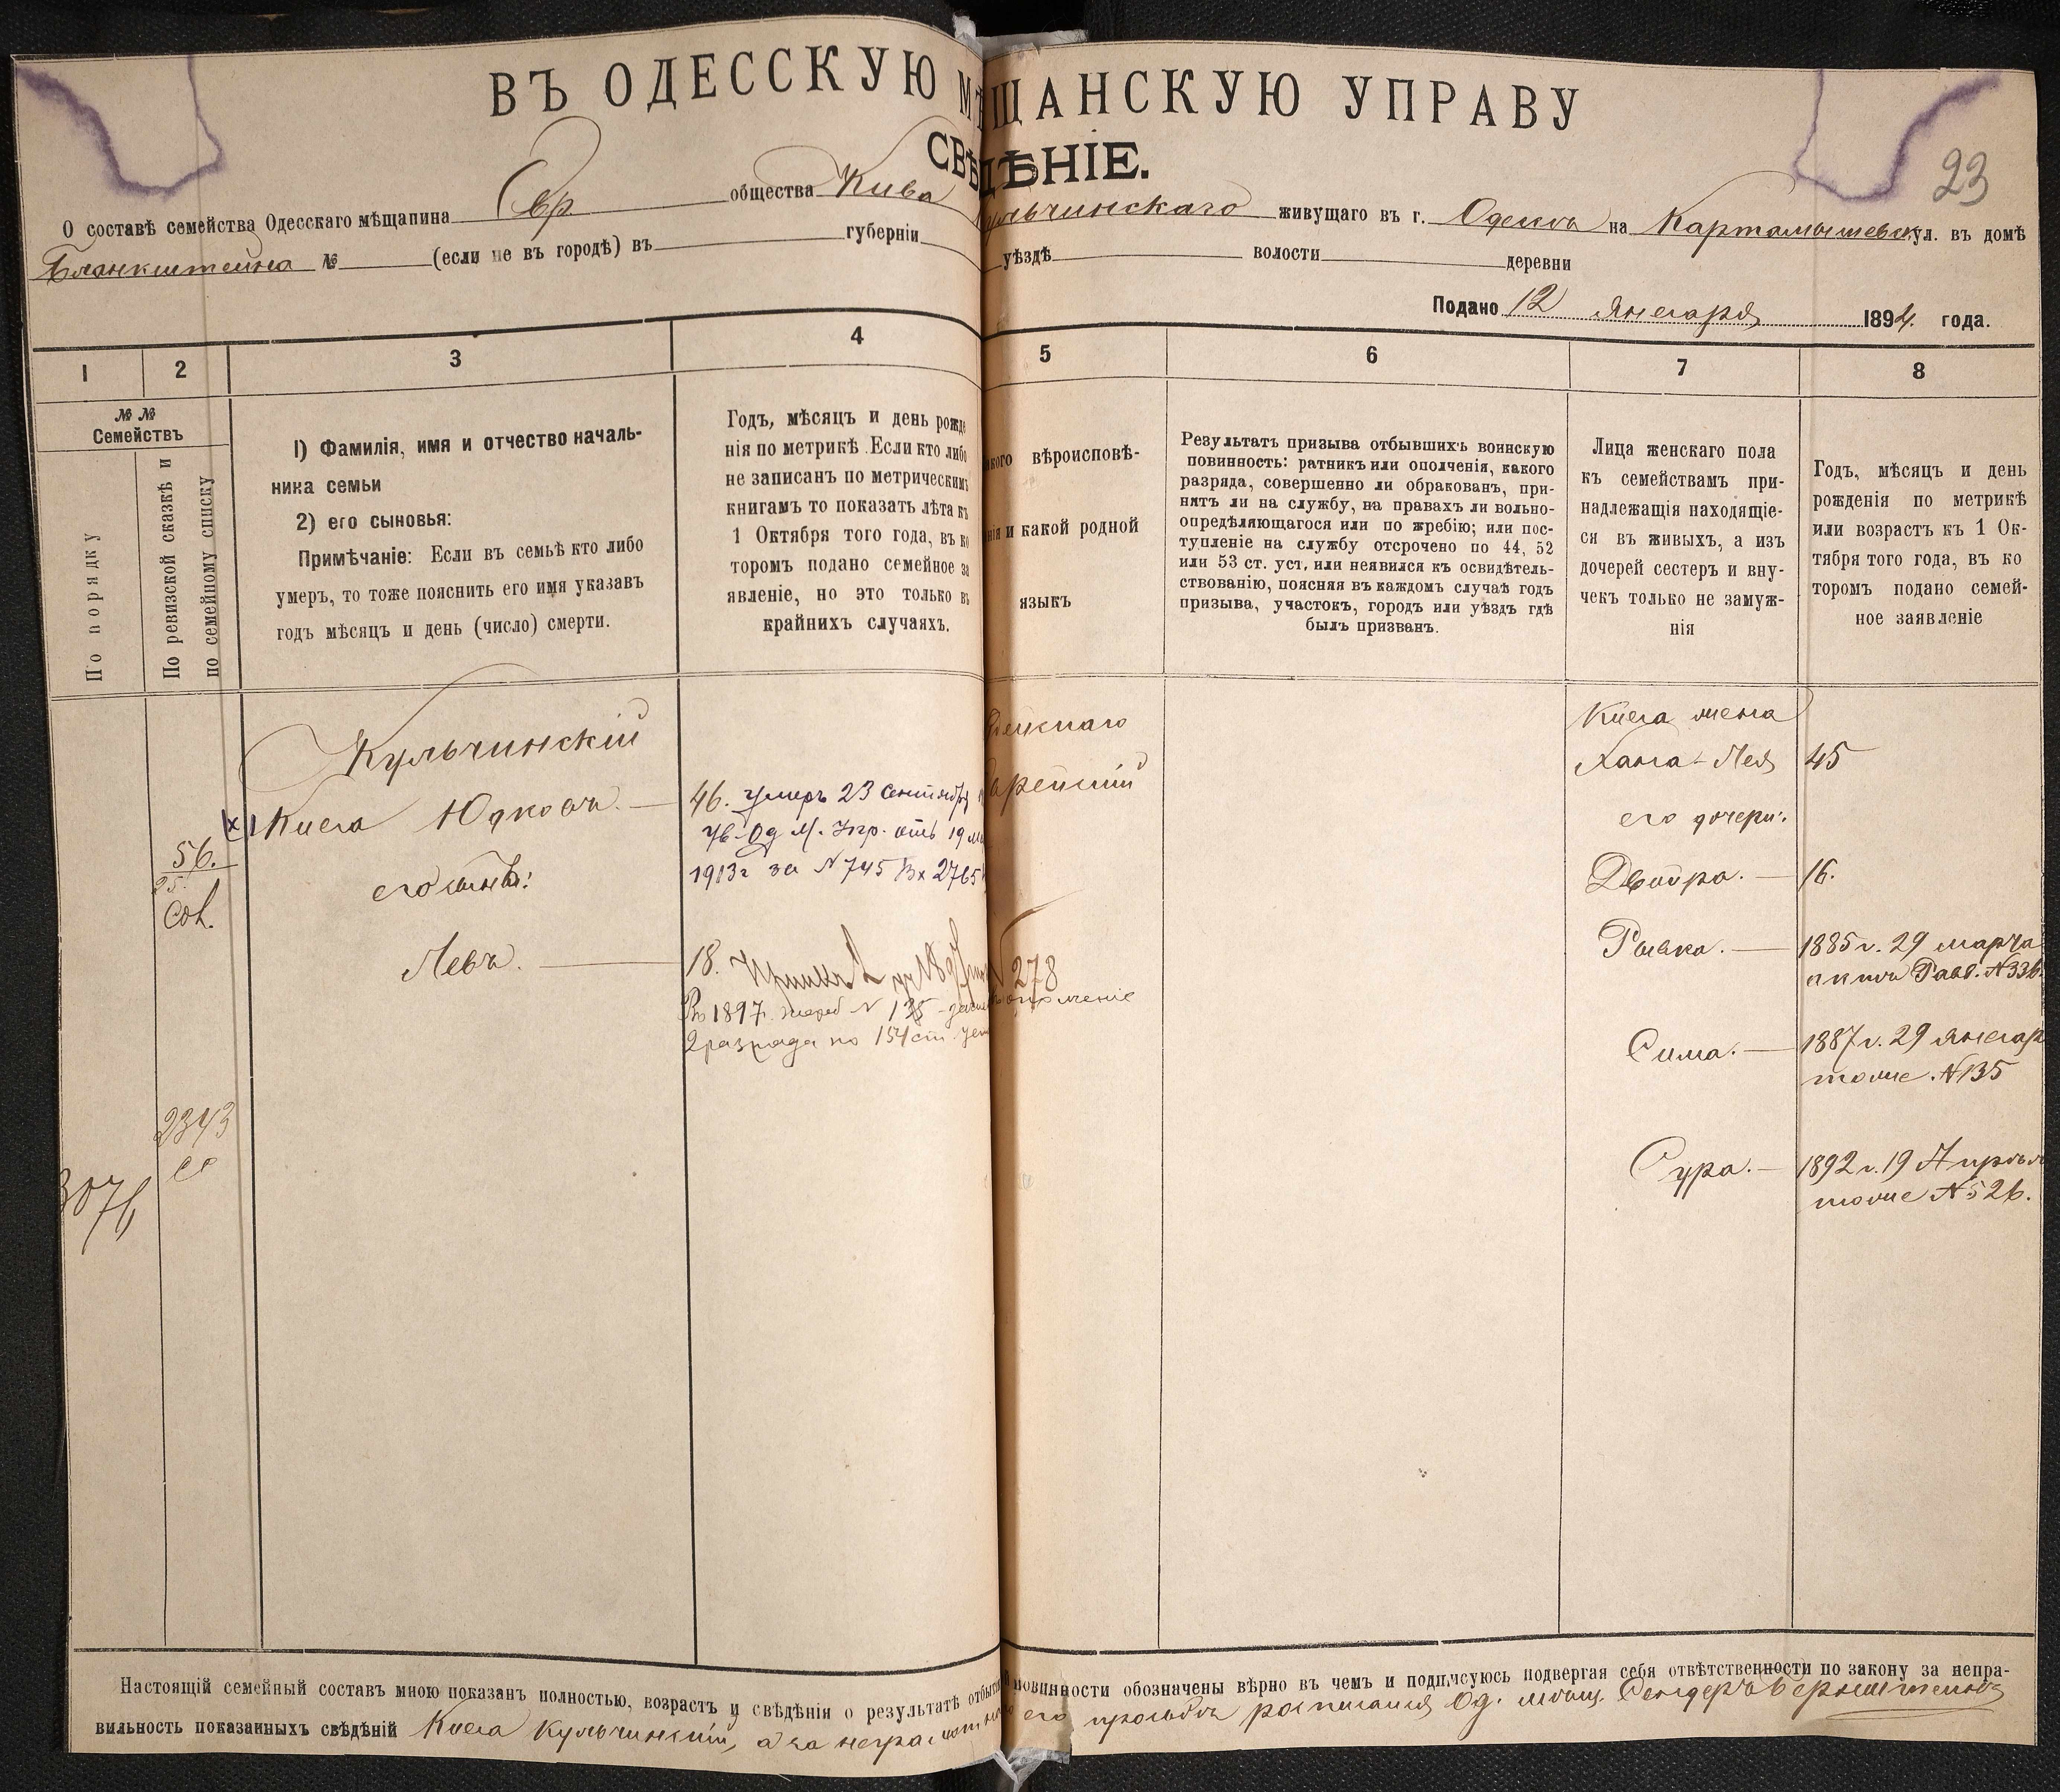 ВЪ ОДЕССКУЮ МѢЩАНСКУЮ УПРАВУ
СВѢДѢНІЕ.
23
О составѣ семейства Одесскаго мѣщанина Евр общества Кива Кульчинскаго живущаго въ г. Одессѣ на Картамышевск ул. въ домѣ
Бланкштейна № (если не въ городѣ) въ губерніи уѣздѣ волости деревни
Подано 12 Января 1894 года.
1 2 3 4 5 6 7 8
№ №
Семействъ
По порядку
По ревизской сказкѣ и
по семейному списку
1) Фамилія, имя и отчество началь-
ника семьи
2) его сыновья:
Примѣчаніе: Если въ семьѣ кто либо
умеръ, то тоже пояснить его имя указавъ
годъ мѣсяцъ и день (число) смерти.
Годъ, мѣсяцъ и день рожде
нія по метрикѣ. Если кто либо
не записанъ по метрическимъ
книгамъ то показать лѣта къ
1 Октября того года, въ ко
торомъ подано семейное за
явленіе, но это только въ
крайнихъ случаяхъ.
вѣроисповѣ-
и какой родной
языкъ
Результатъ призыва отбывшихъ воинскую
повинность: ратникъ или ополченія, какого
разряда, совершенно ли обракованъ, при-
нятъ ли на службу, на правахъ ли вольно-
опредѣляющагося или по жребію; или пос-
тупленіе на службу отсрочено по 44, 52
или 53 ст. уст, или неявился къ освидѣтель-
ствованію, поясняя въ каждомъ случаѣ годъ
призыва, участокъ, городъ или уѣздъ гдѣ
былъ призванъ.
Лица женскаго пола
къ семействамъ при-
надлежащія находящіе-
ся въ живыхъ, а изъ
дочерей сестеръ и вну-
чекъ только не замуж-
нія
Годъ, мѣсяцъ и день
рожденія по метрикѣ
или возрастъ къ 1 Ок-
тября того года, въ ко
торомъ подано семей-
ное заявленіе
56.
25.
2343
3076
Кульчинскій
x 1 Кива Юдковъ. — 46. умеръ 23 сентября
ув. Од М. Упр. отъ 19
1913г за N 745 Вх 2765
его сынъ:
Левъ. — 18. N 278
Въ 1897 г. жереб N 135 ополченіе
2 разряда по 154 ст. уст
Еврейскій
Кива жена
Хана-Лея 45
его дочери:
Двойра. — 16.
Рывка. — 1885 г. 29 марта
актъ Равв. N 336.
Сима. — 1887 г. 29 январ
тоже N 135
Сура. — 1892 г. 19 Апрѣля
тоже N 526.
Настоящій семейный составъ мною показанъ полностью, возрастъ и свѣдѣнія о результатѣ отбытія повинности обозначены вѣрно въ чемъ и подписуюсь подвергая себя отвѣтственности по закону за непра-
вильность показанныхъ свѣдѣній Кива Кульчинскій, а за неграмотн его просьбѣ росписался Од. мѣщ. Сендеръ Бернштейнъ